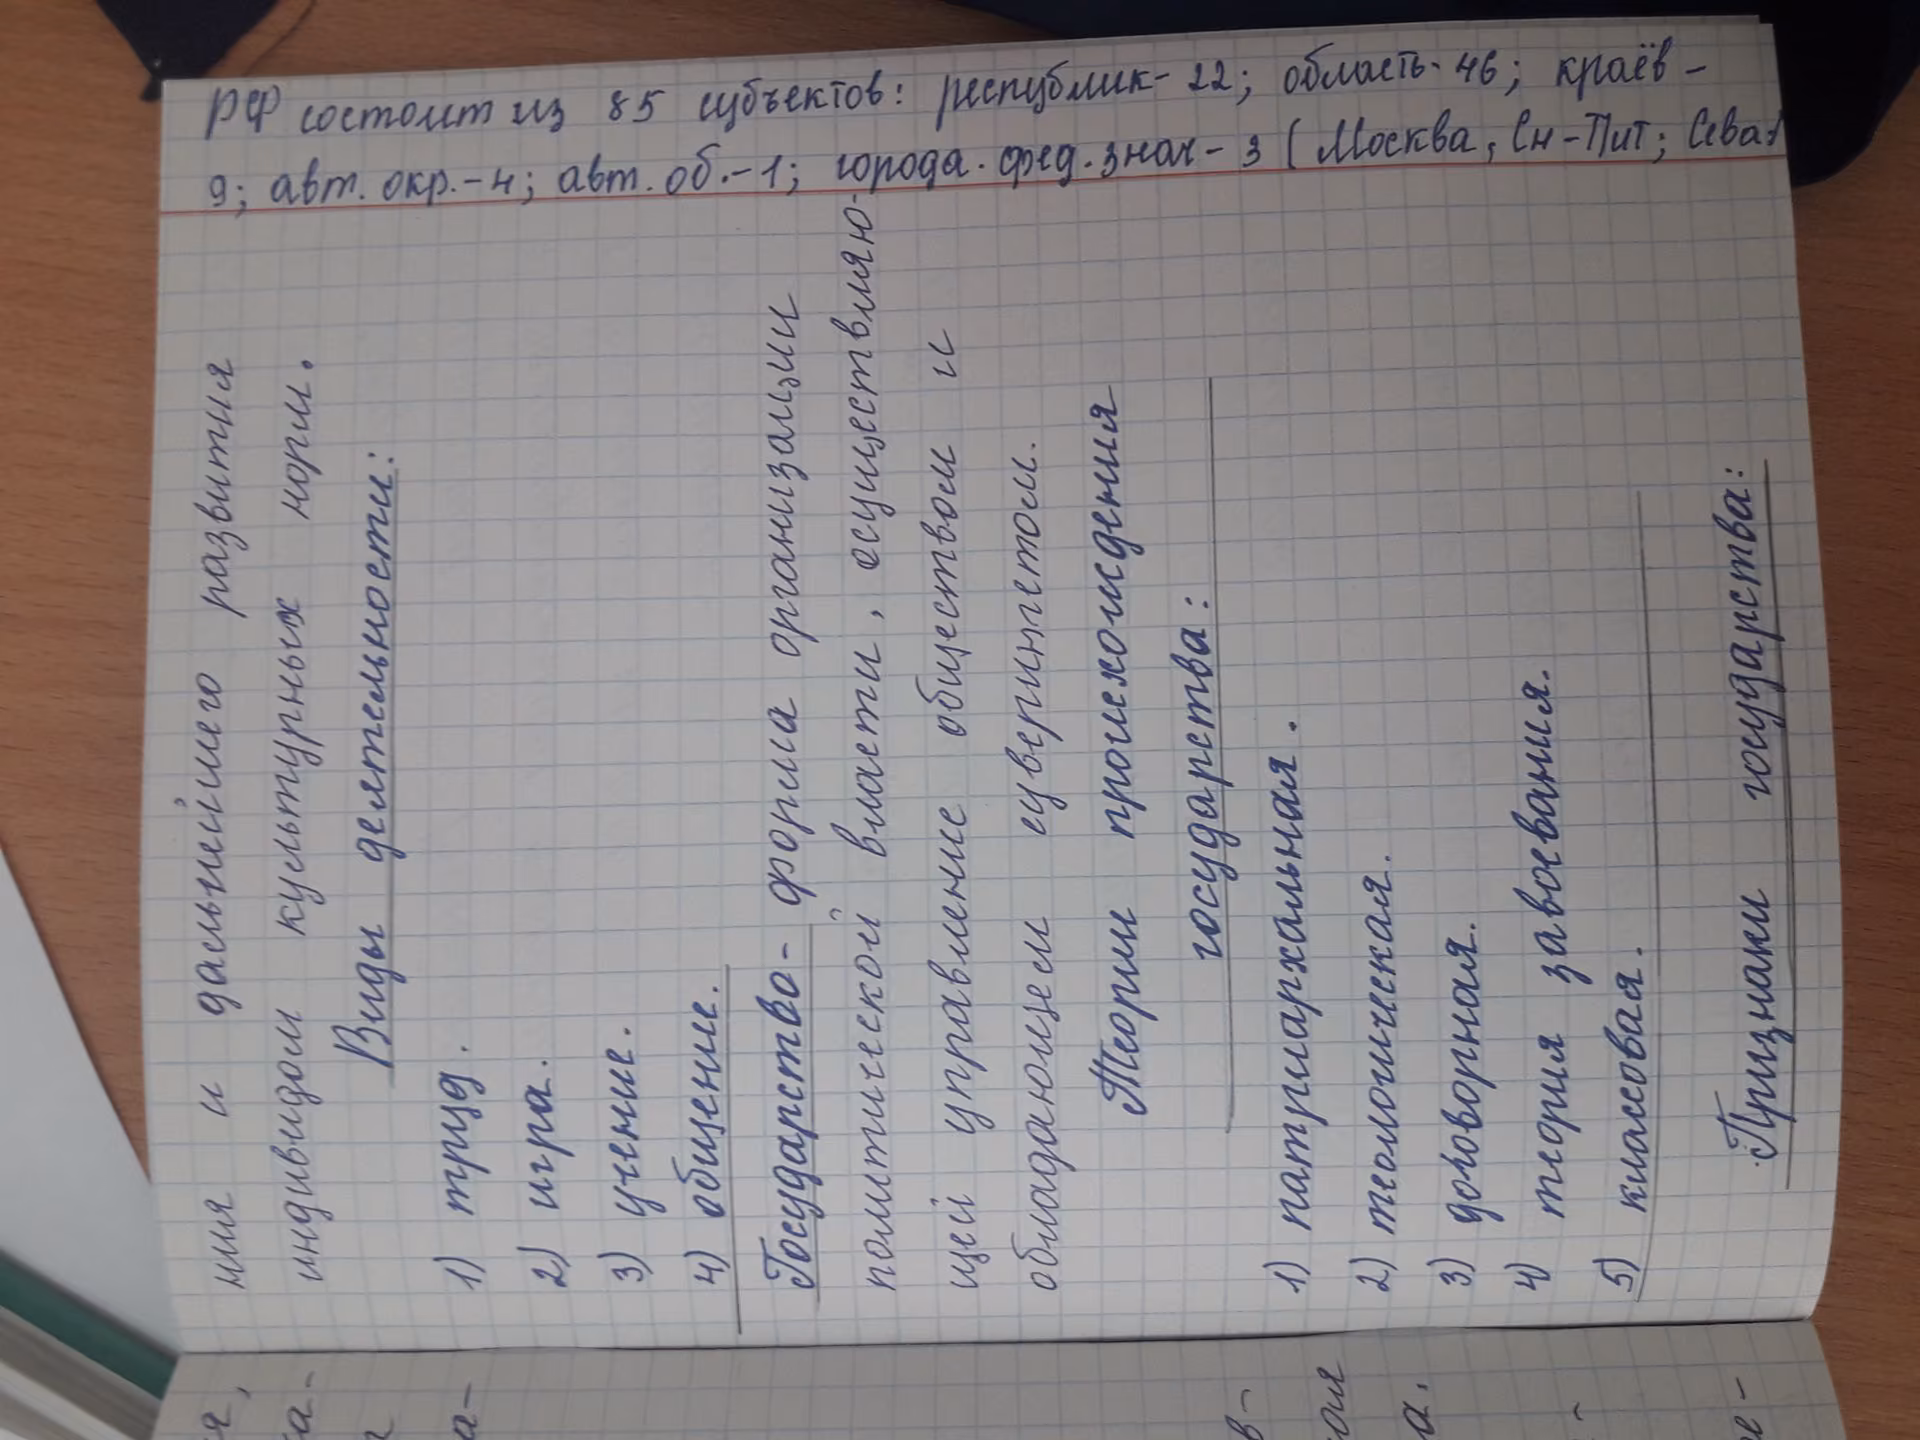 РФ состоит из 85 субъектов: республик- 22; область- 46; краёв -
9; авт. окр.-4; авт. об.-1; города. фед. знач - 3 (Москва, Сн-Пит; Сева
ния и дальнейшего развития
индивидом культурных норм.
Виды деятельности:
1) труд.
2) игра.
3) учение.
4) общение.
Государство- форма организации
политической власти, осуществляю-
щей управление обществом и
обладающем суверинетом.
Теории происхождения
государства:
1) патриархальная.
2) теологическая.
3) договорная.
4) теория завоевания.
5) классовая.
Признаки государства: